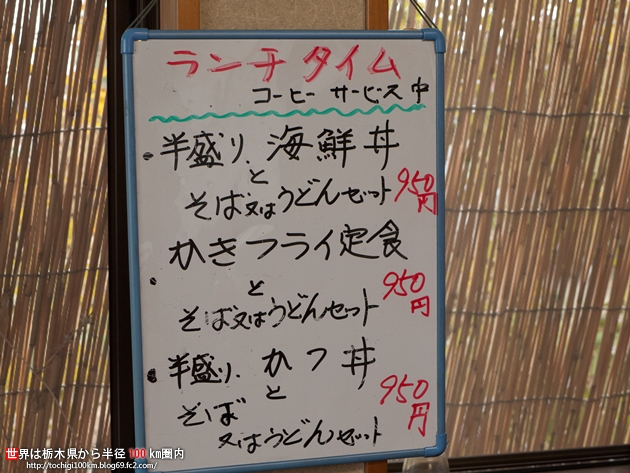 ランチタイム
コーヒーサービス中
半盛り、海鮮丼
と
そば又はうどんセット 950円
かきフライ定食
と
そば又はうどんセット 950円
半盛り、かつ丼
と
そば 950円
又はうどんセット
世界は栃木県から半径100km圏内
http://tochigi100km.blog69.fc2.com/